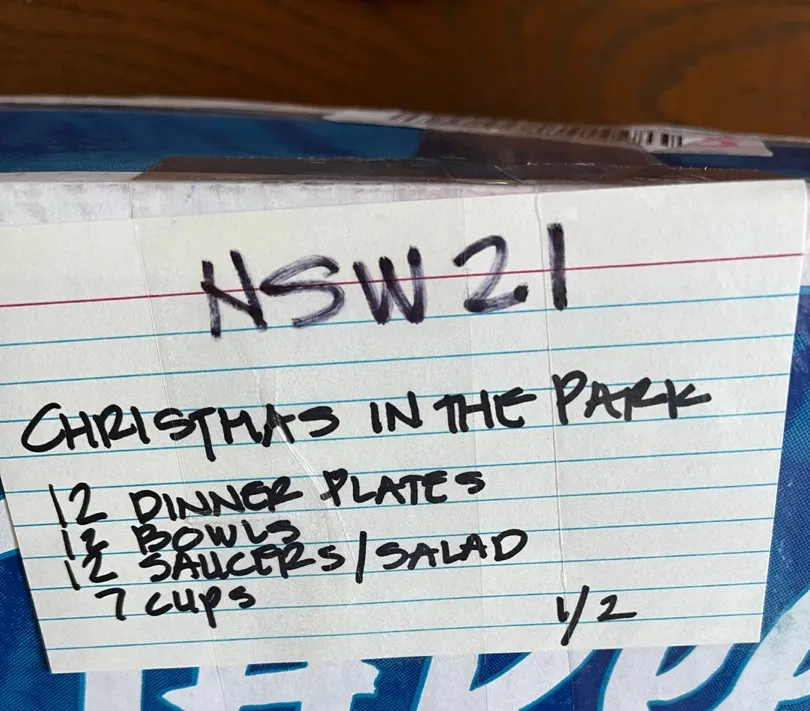 NSW 21
CHRISTMAS IN THE PARK
12 DINNER PLATES
12 BOWLS
12 SAUCERS/SALAD
7 CUPS
1/2